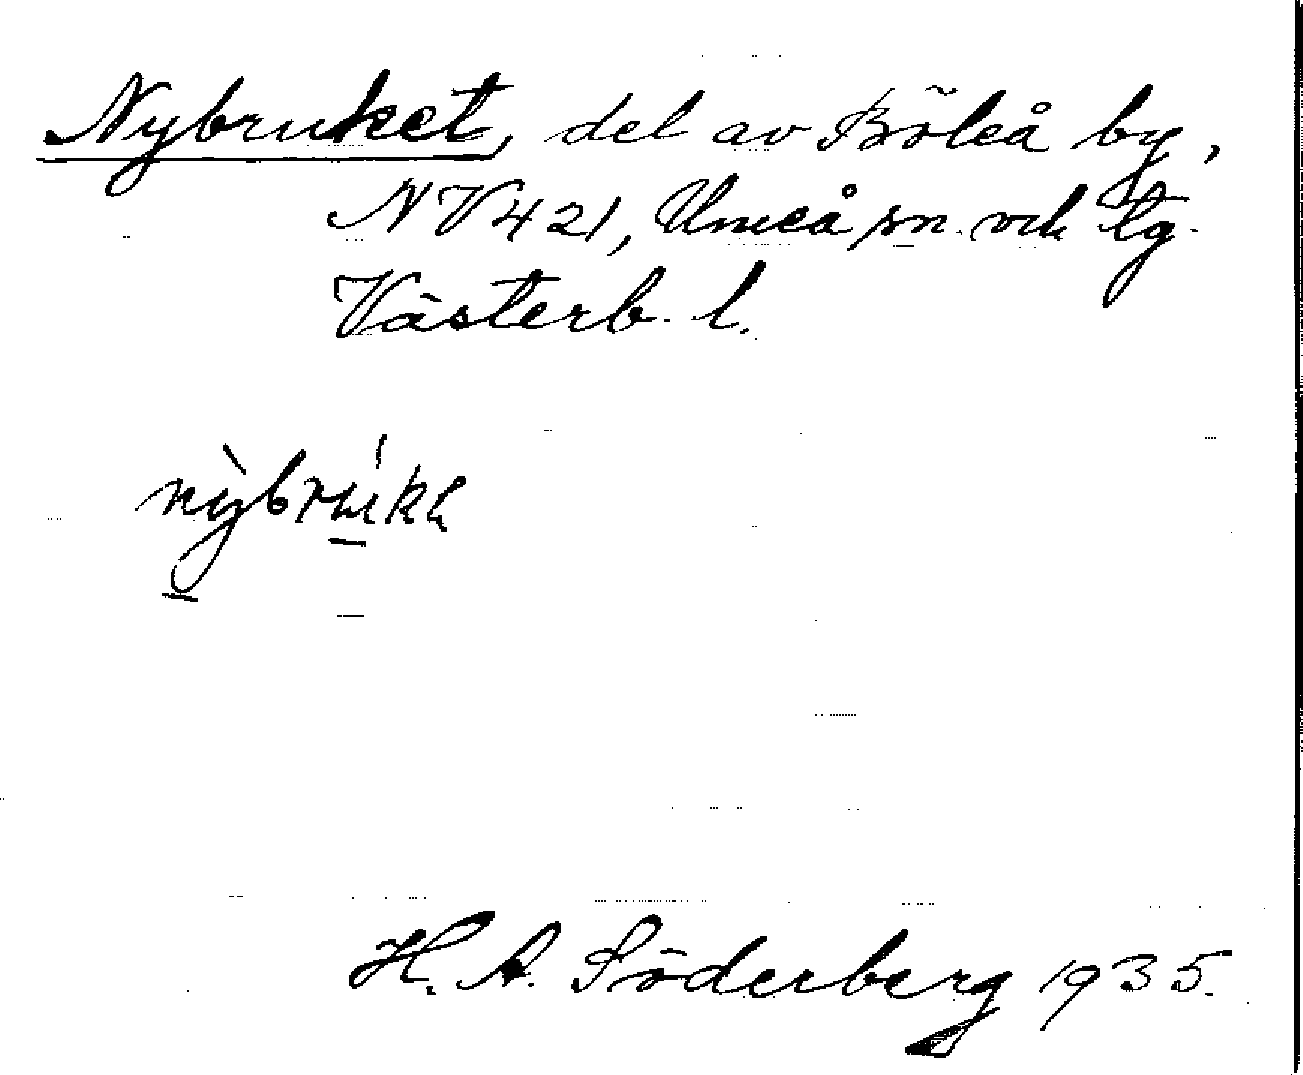 Nybruket, del av Böleå by,
NV421, Umeå sn. och tg.
Västerb. l.
H. A. Söderberg 1935.